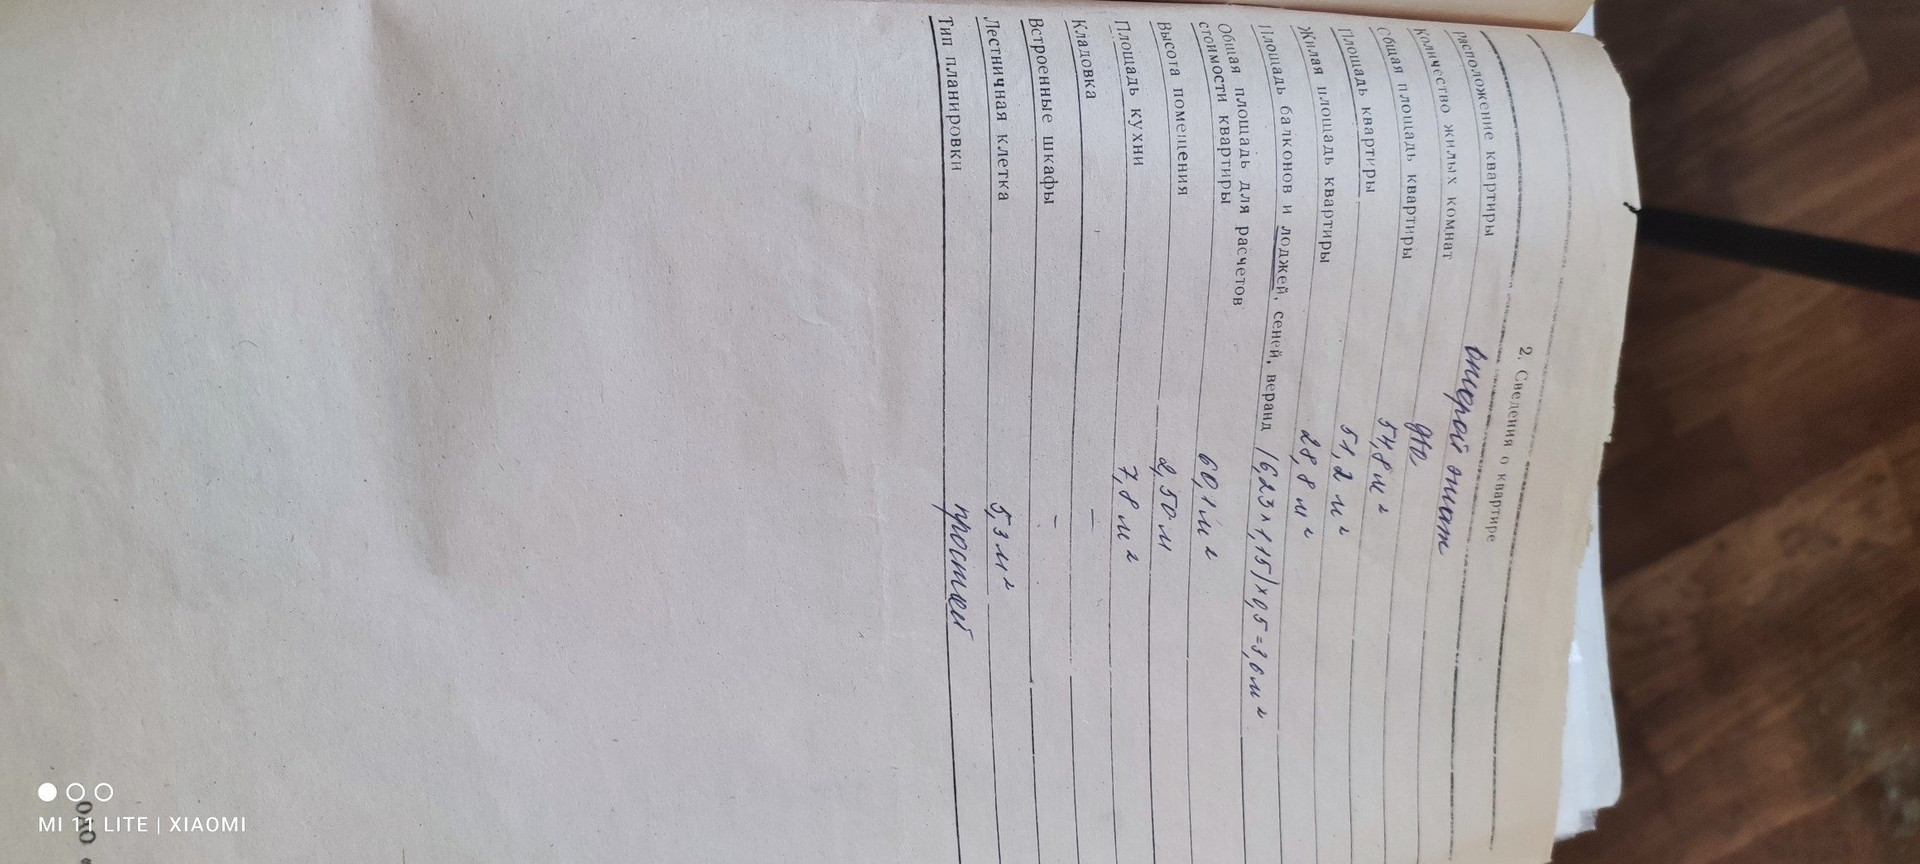 2. Сведения о квартире
Расположение квартиры второй этаж
Количество жилых комнат две
Общая площадь квартиры 54,8 м²
Площадь квартиры 51,2 м²
Жилая площадь квартиры 28,8 м²
Площадь балконов и лоджей, сеней, веранд (6,23×1,15)×0,5=3,6 м²
Общая площадь для расчетов
стоимости квартиры 60,1 м²
Высота помещения 2,50 м
Площадь кухни 7,8 м²
Кладовка –
Встроенные шкафы –
Лестничная клетка 5,3 м²
Тип планировки простой
MI 11 LITE | XIAOMI